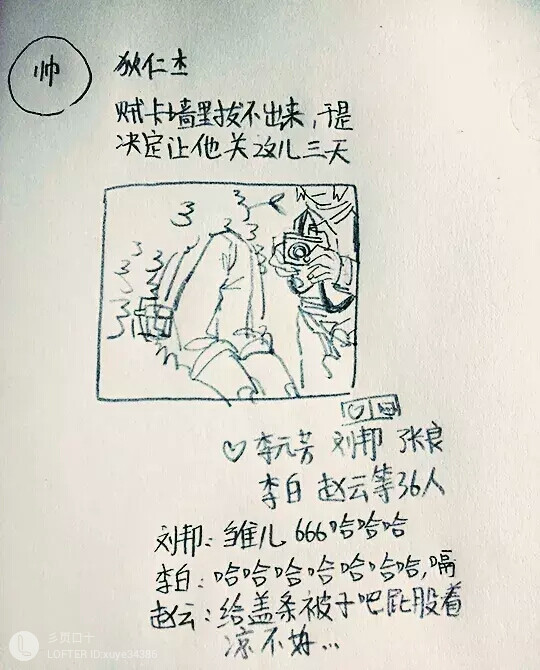 帅
狄仁杰
贼卡墙里拔不出来,于是
决定让他关这儿三天
♡ 李元芳 刘邦 张良
李白 赵云等36人
刘邦:雏儿 666哈哈哈
李白:哈哈哈哈哈哈哈,嗝
赵云:给盖条被子吧屁股着
凉不好…
彡页口十
LOFTER ID:xuye34386